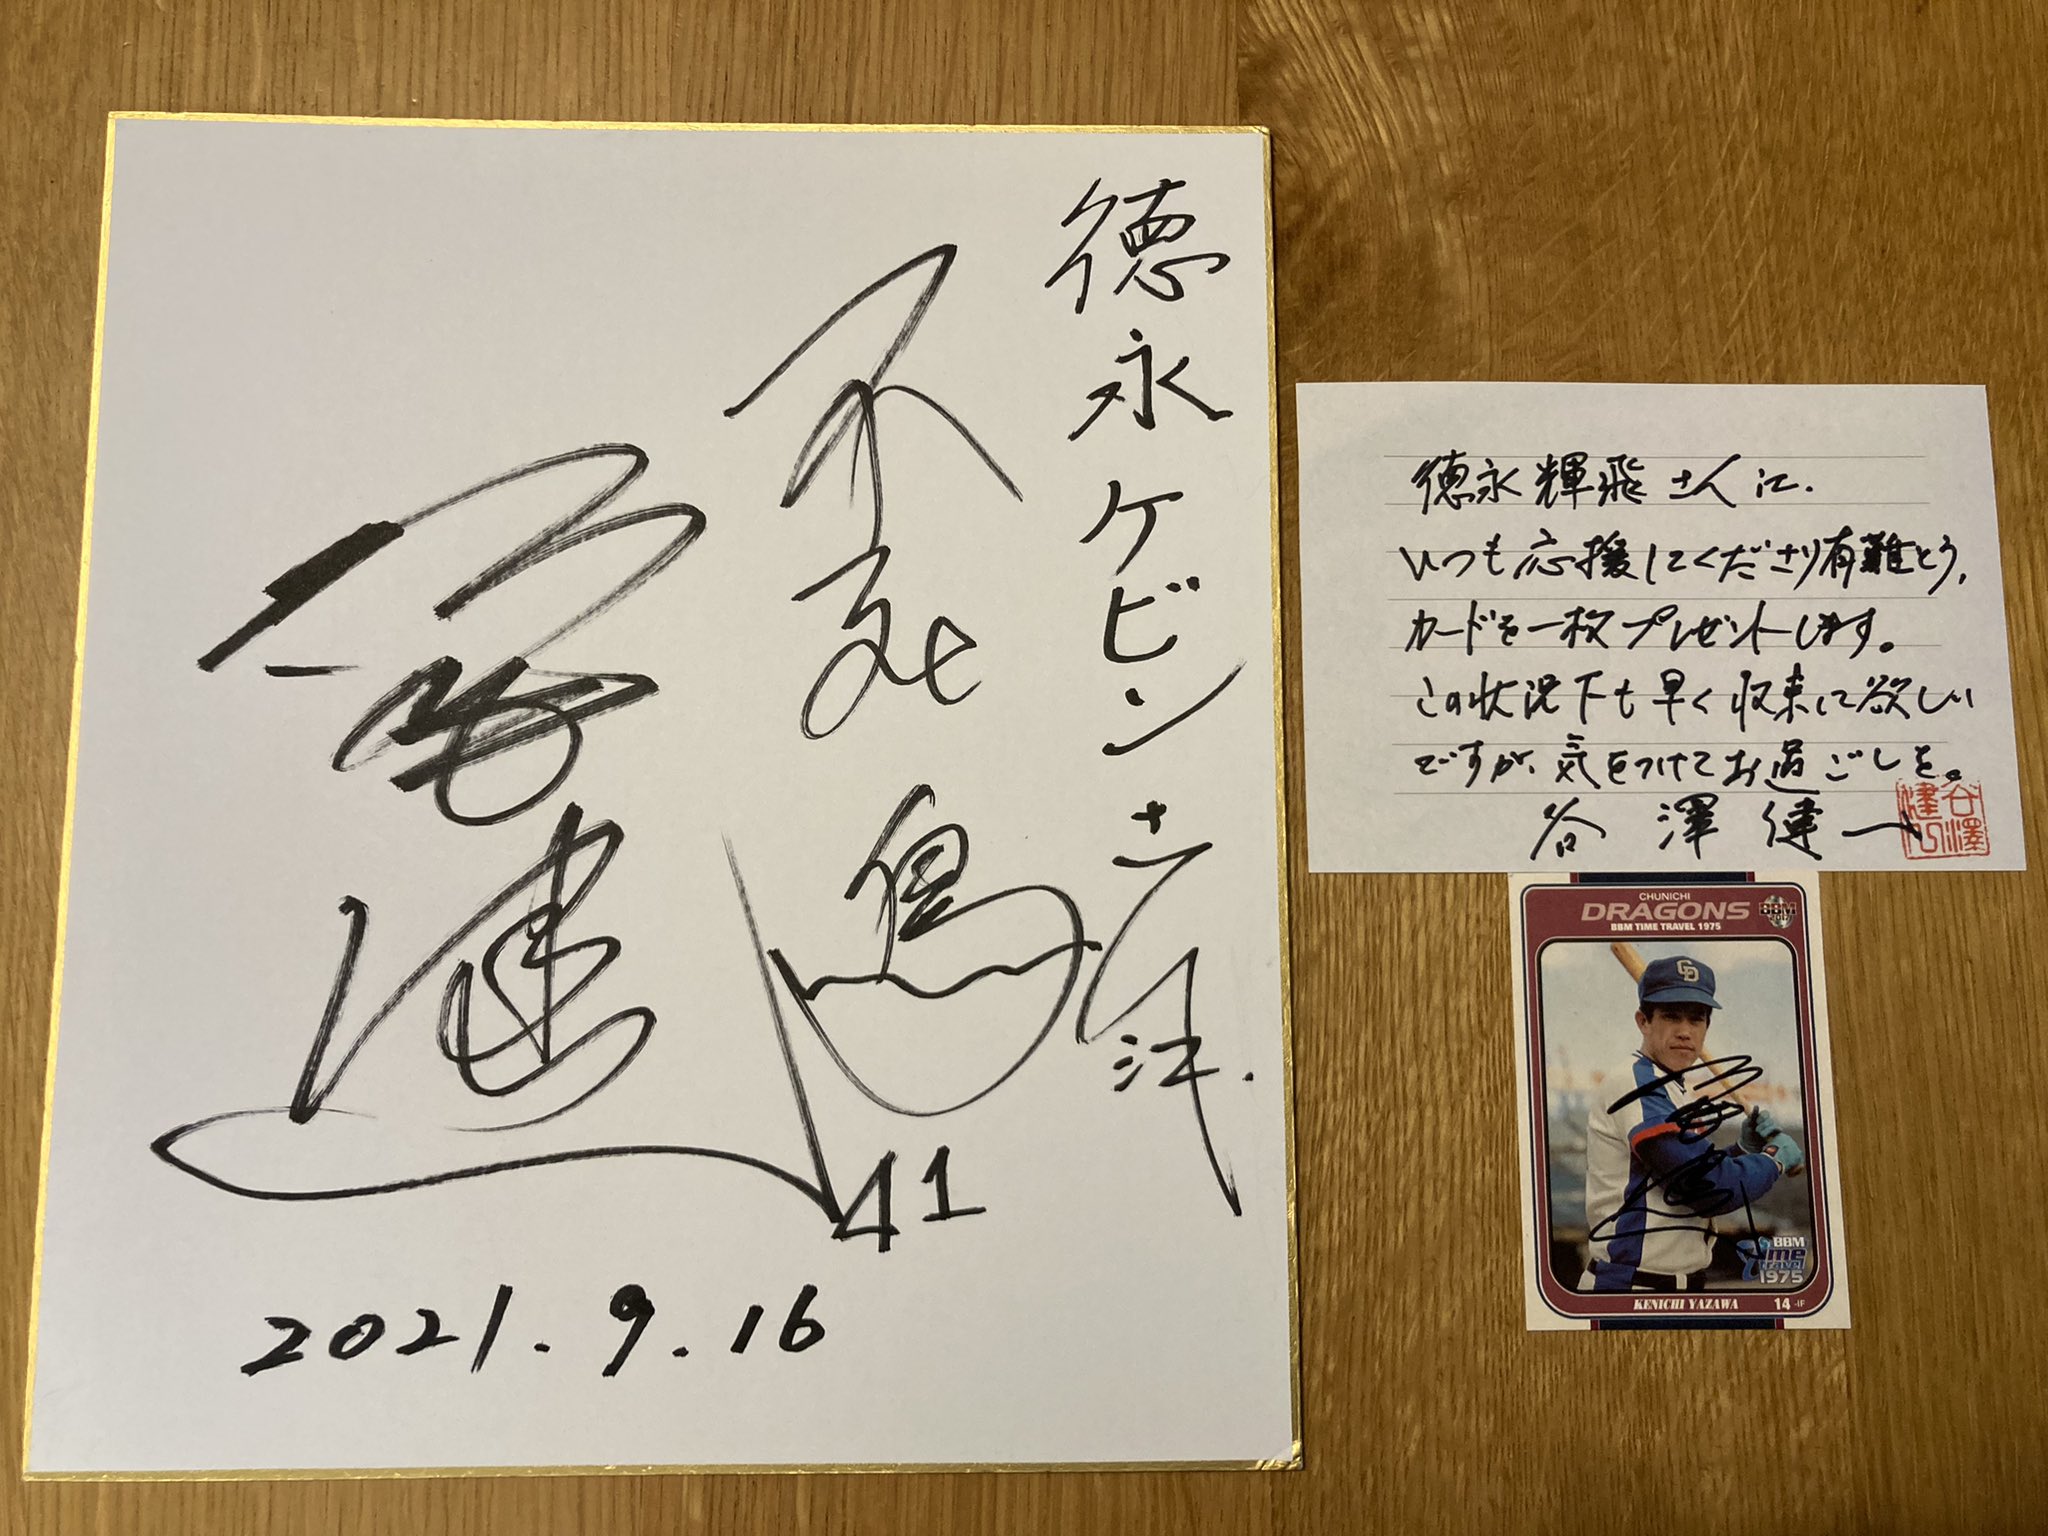 徳永ケビンさんへ
不死鳥
41
2021.9.16
徳永輝飛さんに.
いつも応援してくださり有難とう,
カードを一枚プレゼントします。
この状況下も早く収束して欲しい
ですが、気をつけてお過ごしを。
谷澤健一
谷澤
健一
CHUNICHI
DRAGONS
BBM
BBM TIME TRAVEL 1975
BBM
Time
Travel
1975
KENICHI YAZAWA 14 -IF